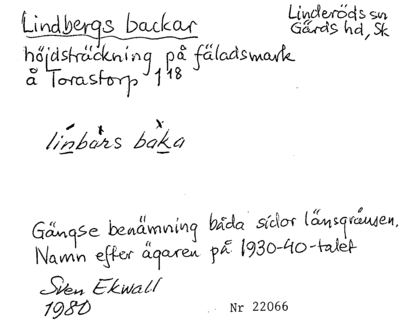 Lindbergs backar
Linderöds sn
Gärds hd, Sk
höjdsträckning på fäladsmark
å Torastorp 1¹⁸
linbårs baka
Gängse benämning båda sidor länsgränsen.
Namn efter ägaren på 1930-40-talet
Sven Ekwall
1980
Nr 22066